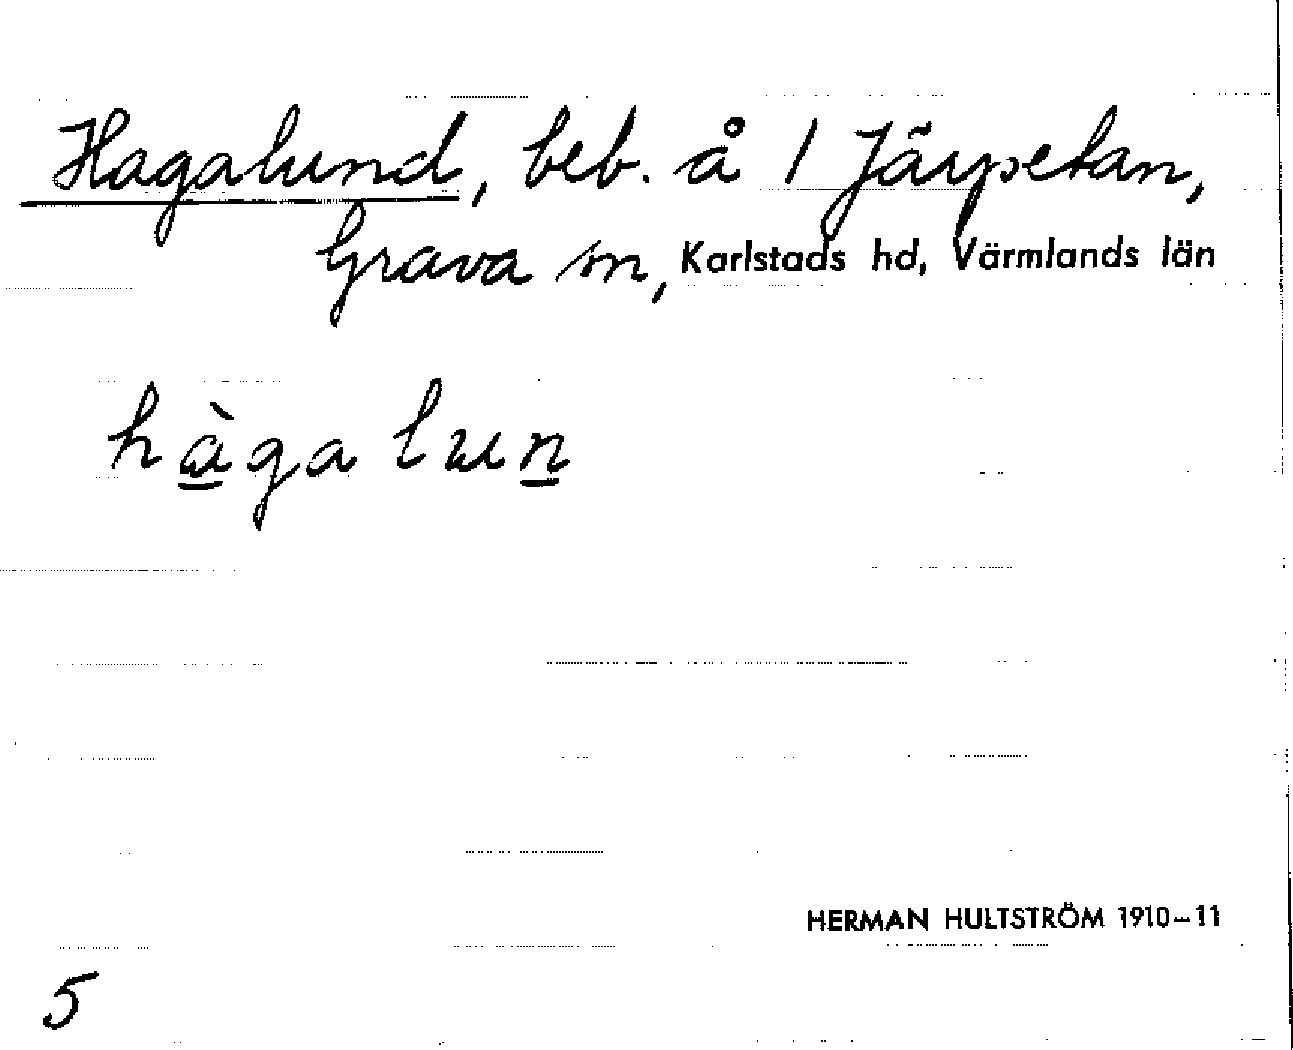 Hagalund, beb. å 1 Järpetan,
Grava sn, Karlstads hd, Värmlands län
hàga lun
HERMAN HULTSTRÖM 1910–11
5